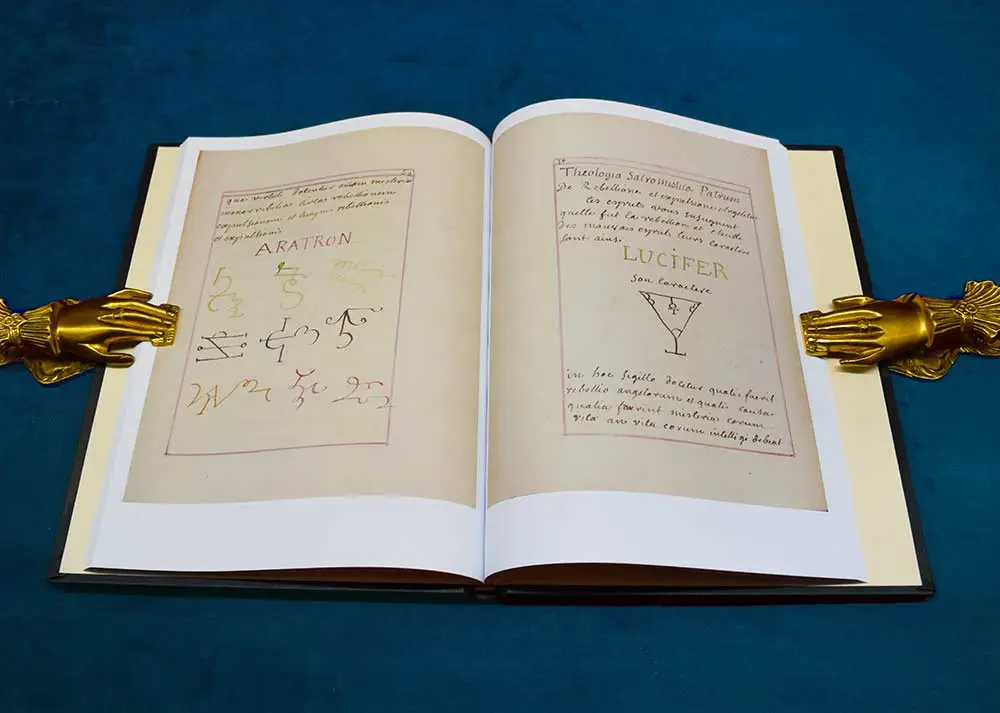 quas virtute docentur etiam misteria
expulsionem et linguas rebellionis
et expulsionis
ARATRON
34
Theologia Sacromistica Patrum
De Rebellione et expulsione Angelorum
les esprits nous enseignent
quelle fut la rebellion et
des mauvais esprits leurs caractere
sont ainsi
LUCIFER
Son caractere
in hoc sigillo docetur qualis fuerit
rebellio angelorum et qualis causa
qualia fuerint misteria eorum
vita an vita eorum intelligi debeat